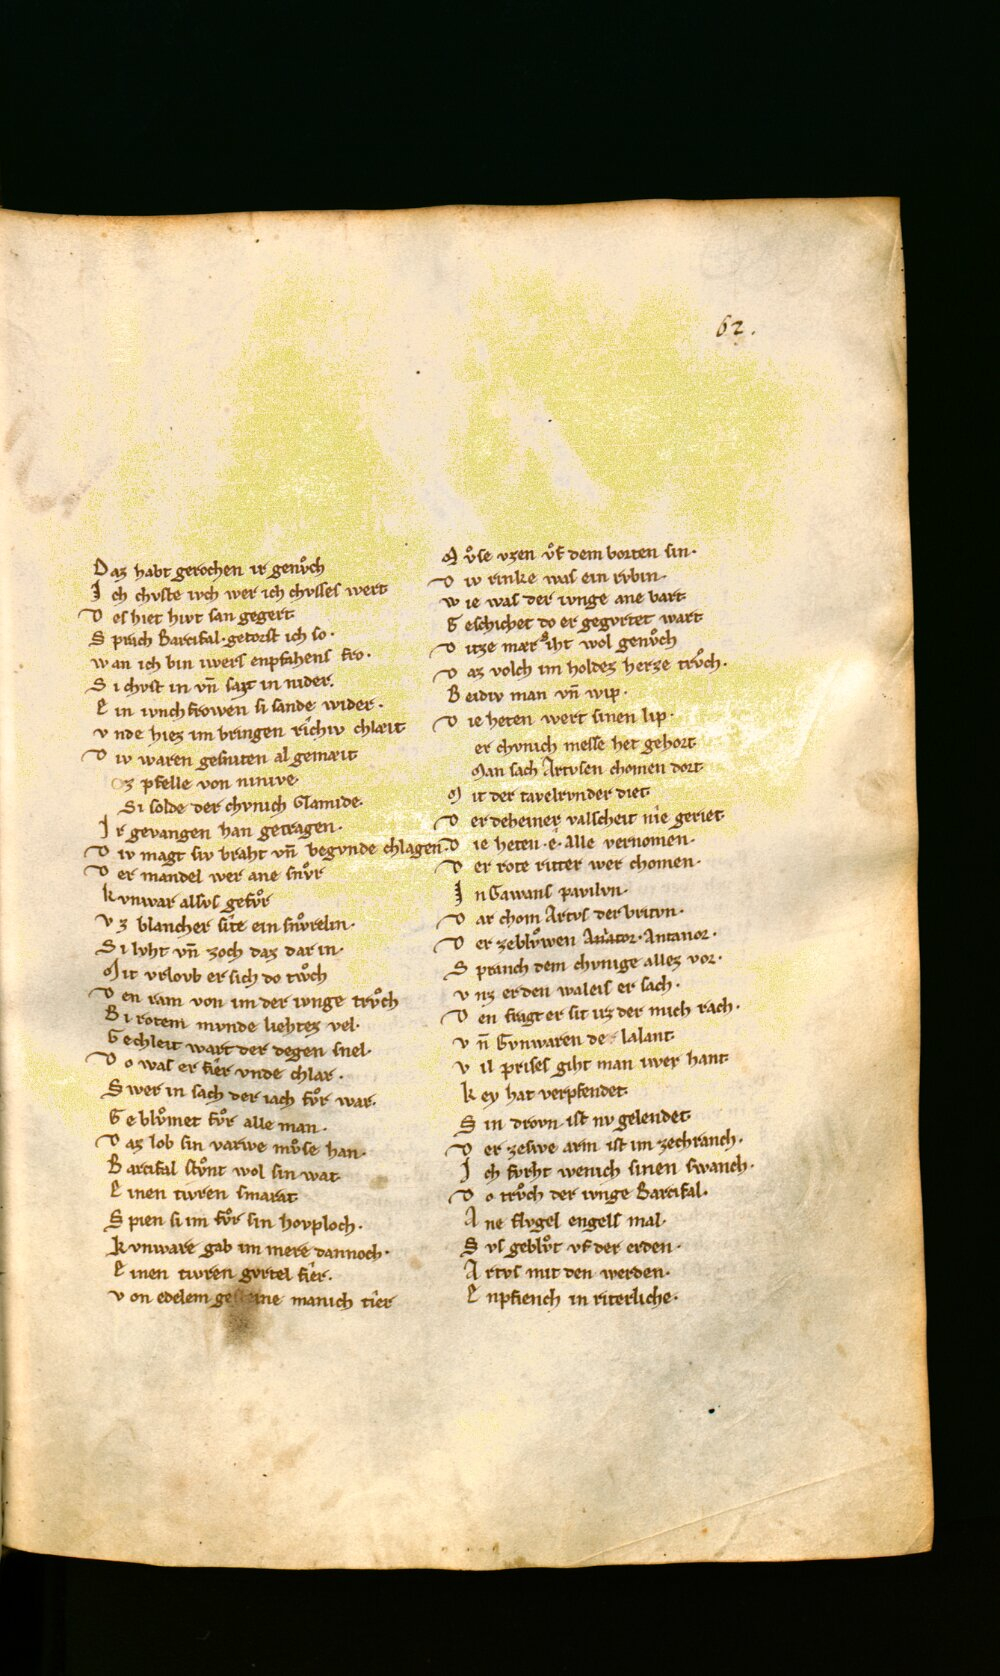 62.
Daz habt gerochen ir genuͦch
Ich chvste ivch wer ich chvsses wert
Des hiet hivt san gegert
Sprach Barcifal·getorst ich so·
wan ich bin ivers enpfahens fro·
Si chvst in vn̄ sazt in nider.
Ein ivnchfrowen si sande wider·
vnde hiez im bringen richiv chlæit
Div waren gesniten al gemæit
vz pfelle von ninive
Si solde der chvnich Clamide·
Ir gevangen han getragen·
Div magt siv braht vn̄ begvnde chlagen·
Der mandel wer ane snuͦr
kvnwar alsvs gefuͦr
vz blancher site ein snuͦrelin·
Si lvht vn̄ zoch daz dar in·
Mit vrlovb er sich do twoͮch
Den ram von im der ivnge truͦch
Bi rotem mvnde liehtez vel·
Gechleit wart der degen snel·
Do was er fier vnde chlar·
Swer in sach der iach fuͦr war·
Gebluͦmet fuͦr alle man·
Daz lob sin varwe muͦse han·
Barcifal stuͦnt wol sin wat
Einen tivren smarat
Spien si im fuͦr sin hovploch·
kvnware gab im mere dannoch·
Einen tivren gvrtel fier·
von edelem gesteine manich tier
Muͦse vzen uͦf dem borten sin·
Div rinke was ein rvbin·
wie was der ivnge ane bart
Geschichet do er gegvrtet wart
Ditze mær giht wol genuͦch
Daz volch im holdez herze truͦch·
Beidiv man vn̄ wip·
Die heten wert sinen lip·
er chvnich messe het gehort
Man sach Artvsen chomen dort
Mit der tavelrvnder diet
Der deheiner valscheit nie geriet
Die heten·e·alle vernomen·
Der rote ritter wer chomen·
In Gawans pavilvn·
Dar chom Artvs der britvn·
Der zebluͦwen Anator·Antanor·
Spranch dem chvnige allez vor·
vnz er den waleis er sach·
Den fragt er sit irz der mich rach·
vn̄ Cvnwaren de lalant
vil prises giht man iwer hant
key hat verpfendet
Sin drovn ist nv gelendet
Der zeswe arm ist im zechranch·
Ich fvrht wenich sinen swanch·
Do truͦch der ivnge Barcifal·
Ane flvgel engels mal·
Svs gebluͦt vf der erden·
Artvs mit den werden·
Enpfiench in riterliche·